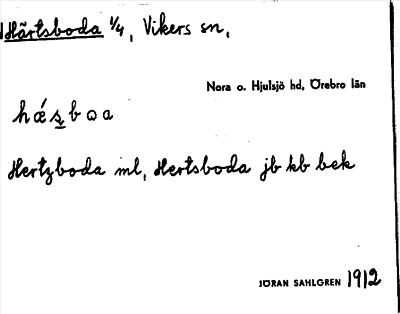 Härtsboda 1/4, Vikers sn,
Nora o. Hjulsjö hd, Örebro län
hǽʂboa
Hertzboda ml, Hertsboda jb kb bek
JÖRAN SAHLGREN 1912